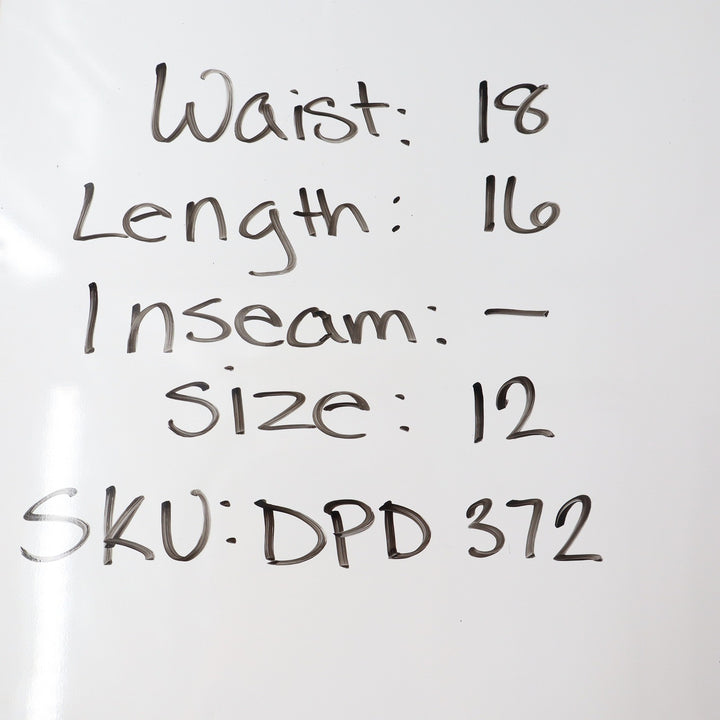 Waist: 18
Length: 16
Inseam: —
Size: 12
SKU: DPD 372